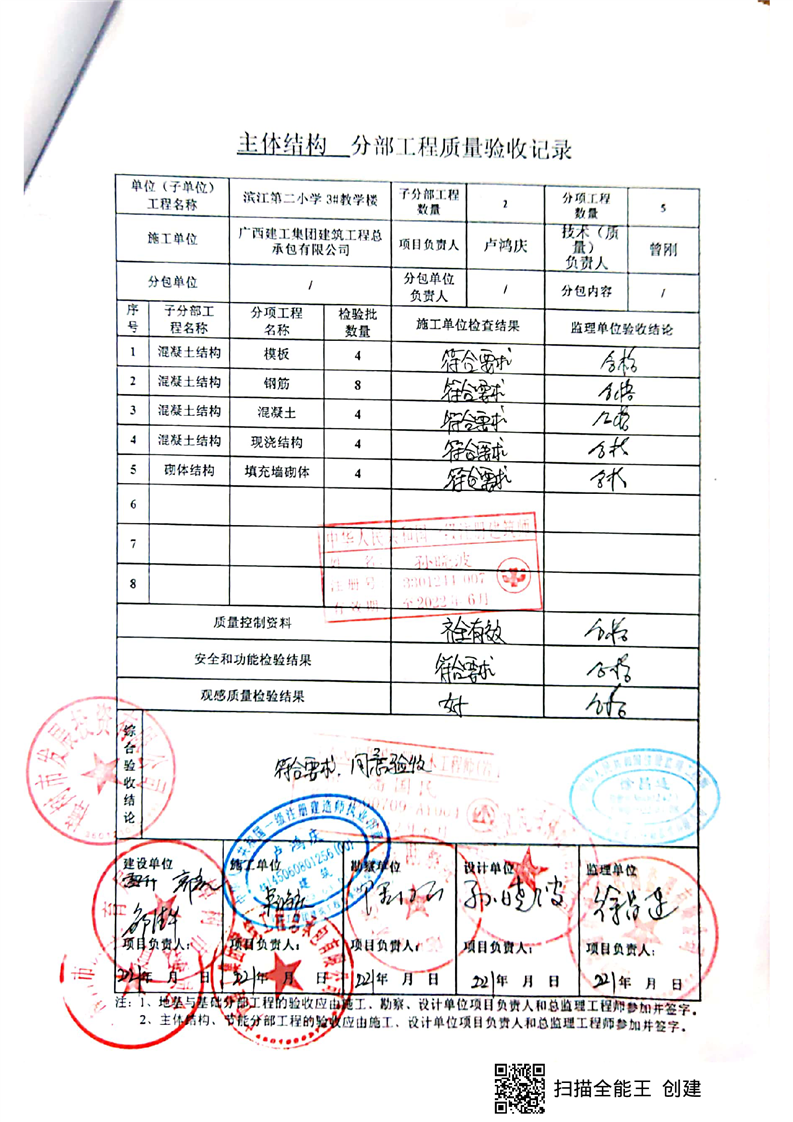 主体结构 分部工程质量验收记录
单位（子单位）工程名称 滨江第二小学 3#教学楼 子分部工程数量 2 分项工程数量 5
施工单位 广西建工集团建筑工程总承包有限公司 项目负责人 卢鸿庆 技术（质量）负责人 曾刚
分包单位 / 分包单位负责人 / 分包内容 /
序号 子分部工程名称 分项工程名称 检验批数量 施工单位检查结果 监理单位验收结论
1 混凝土结构 模板 4 符合要求 合格
2 混凝土结构 钢筋 8 符合要求 合格
3 混凝土结构 混凝土 4 符合要求 合格
4 混凝土结构 现浇结构 4 符合要求 合格
5 砌体结构 填充墙砌体 4 符合要求 合格
6
7
8
中华人民共和国一级注册建筑师
姓 名 孙晓波
注册号
有效期 至2022年6月
质量控制资料 齐全有效 合格
安全和功能检验结果 符合要求 合格
观感质量检验结果 好 合格
综合验收结论 符合要求，同意验收
建设单位 施工单位 勘察单位 设计单位 监理单位
卢鸿庆
孙晓波 徐昌建
项目负责人： 项目负责人： 项目负责人： 项目负责人： 项目负责人：
221年 月 日 221年 月 日 221年 月 日 221年 月 日 221年 月 日
注：1、地基与基础分部工程的验收应由施工、勘察、设计单位项目负责人和总监理工程师参加并签字。
2、主体结构、节能分部工程的验收应由施工、设计单位项目负责人和总监理工程师参加并签字。
扫描全能王 创建